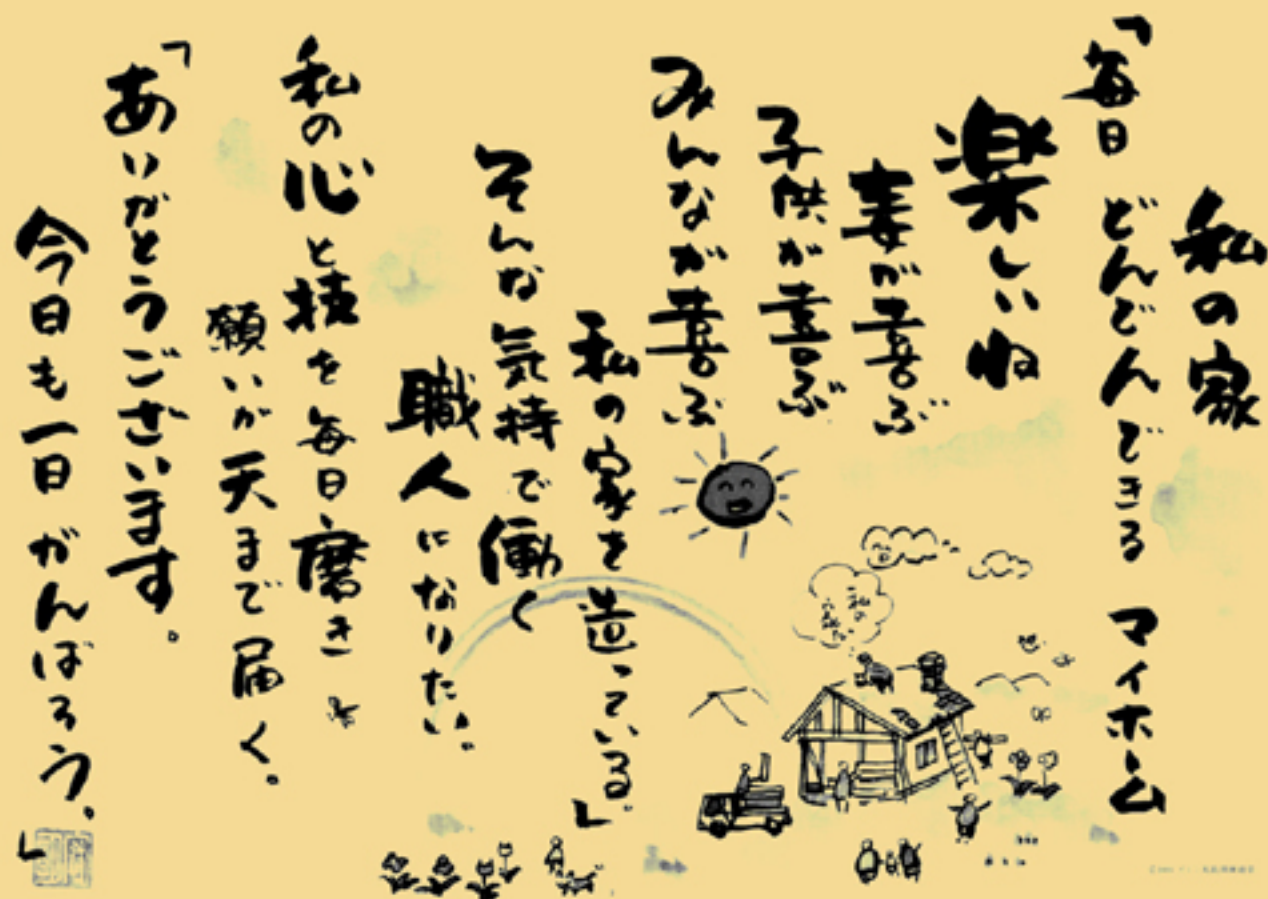 私の家
「毎日 どんどんできる マイホーム
楽しいね
妻が喜ぶ
子供が喜ぶ
みんなが喜ぶ
私の家を造っている。」
そんな気持で働く
職人になりたい。
私の心と技を毎日磨き
願いが天まで届く。
「ありがとうございます。
今日も一日 がんばろう。」
私の